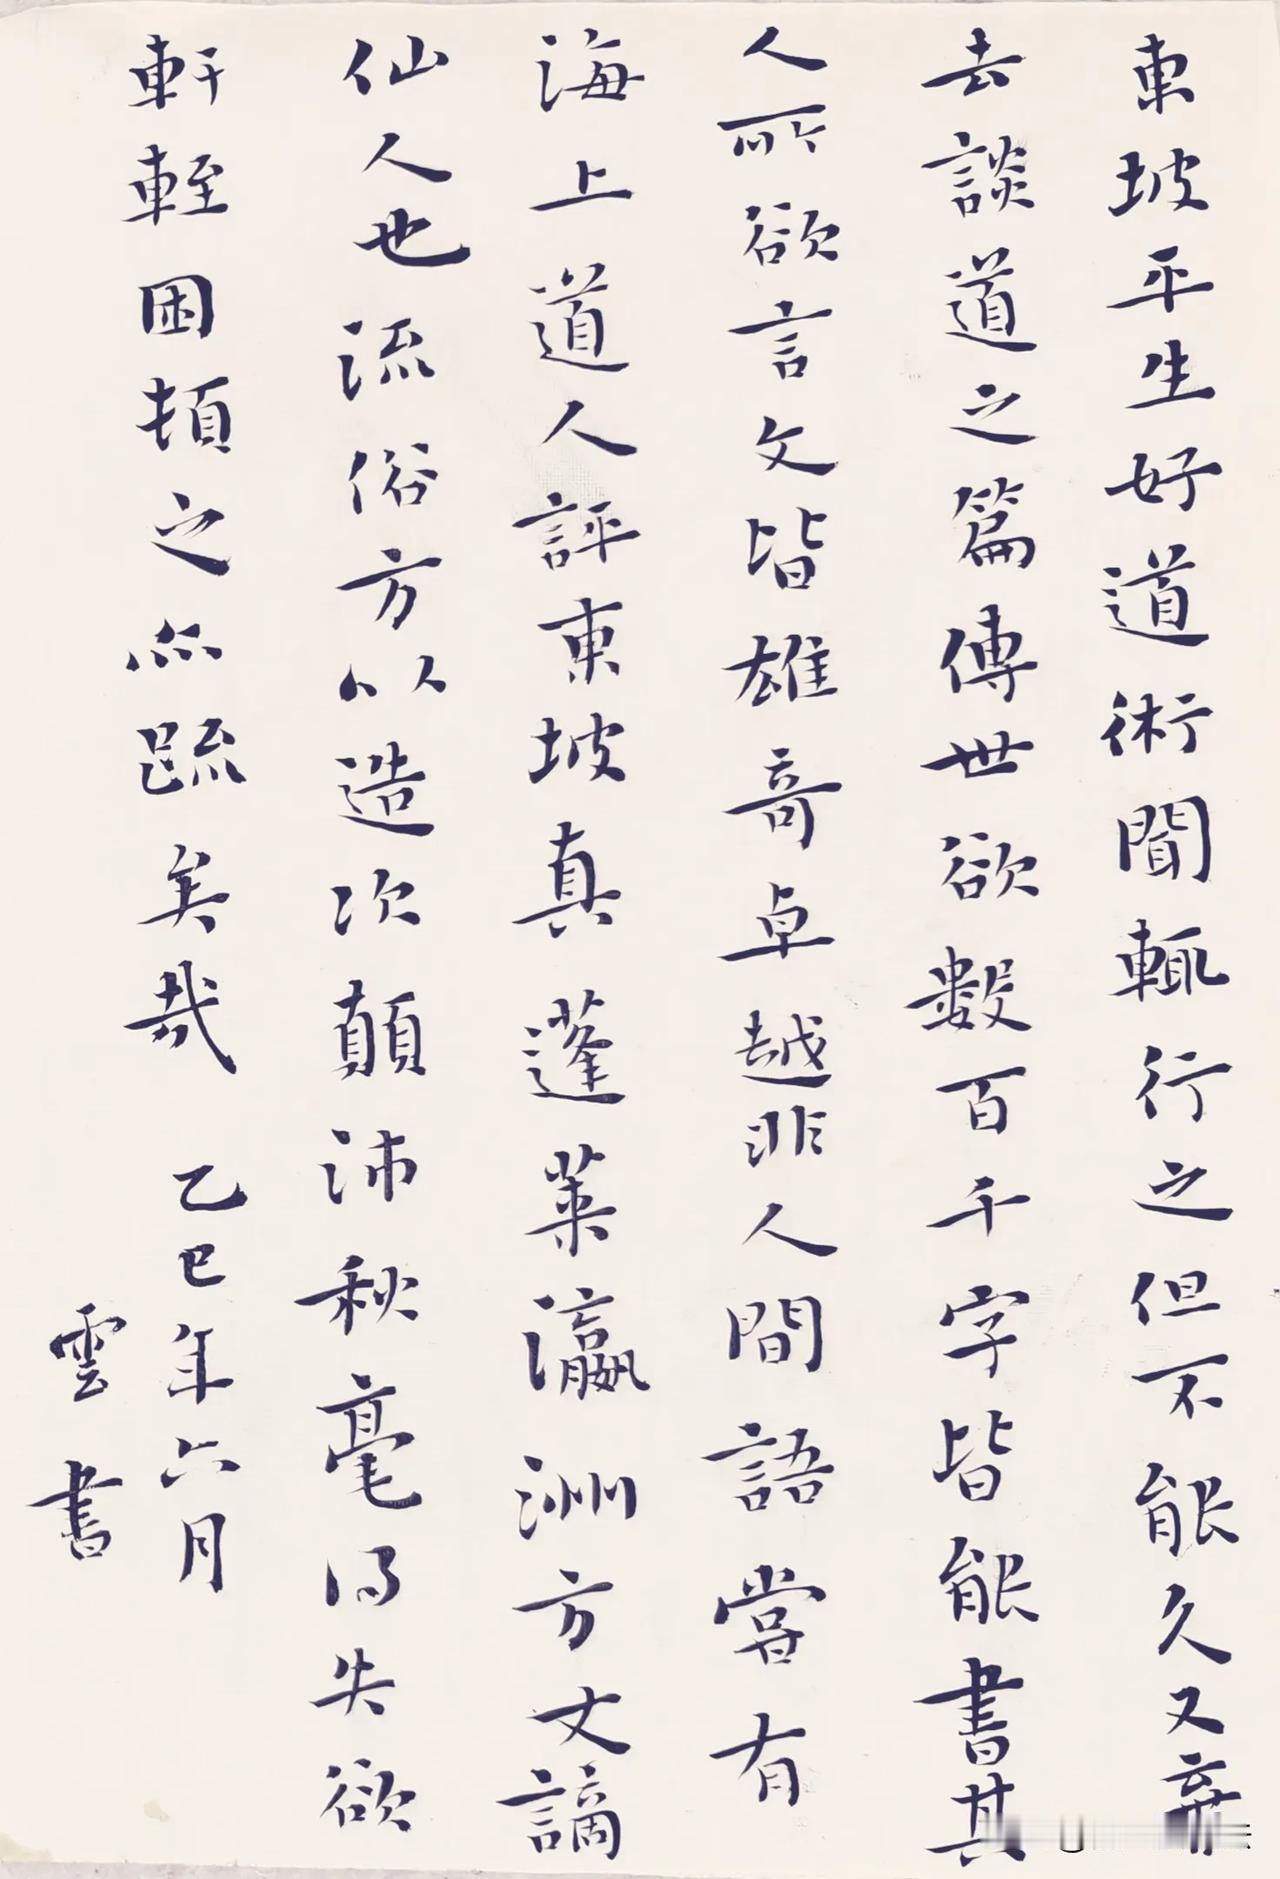 東坡平生好道術聞輒行之但不能久又棄
去談道之篇傳世欲數百千字皆能書其
人所欲言文皆雄奇卓越非人間語嘗有
海上道人評東坡真蓬萊瀛洲方丈謫
仙人也流俗方以造次顛沛秋毫得失欲
軒輊困頓之亦疏矣哉
乙巳年六月
雲書